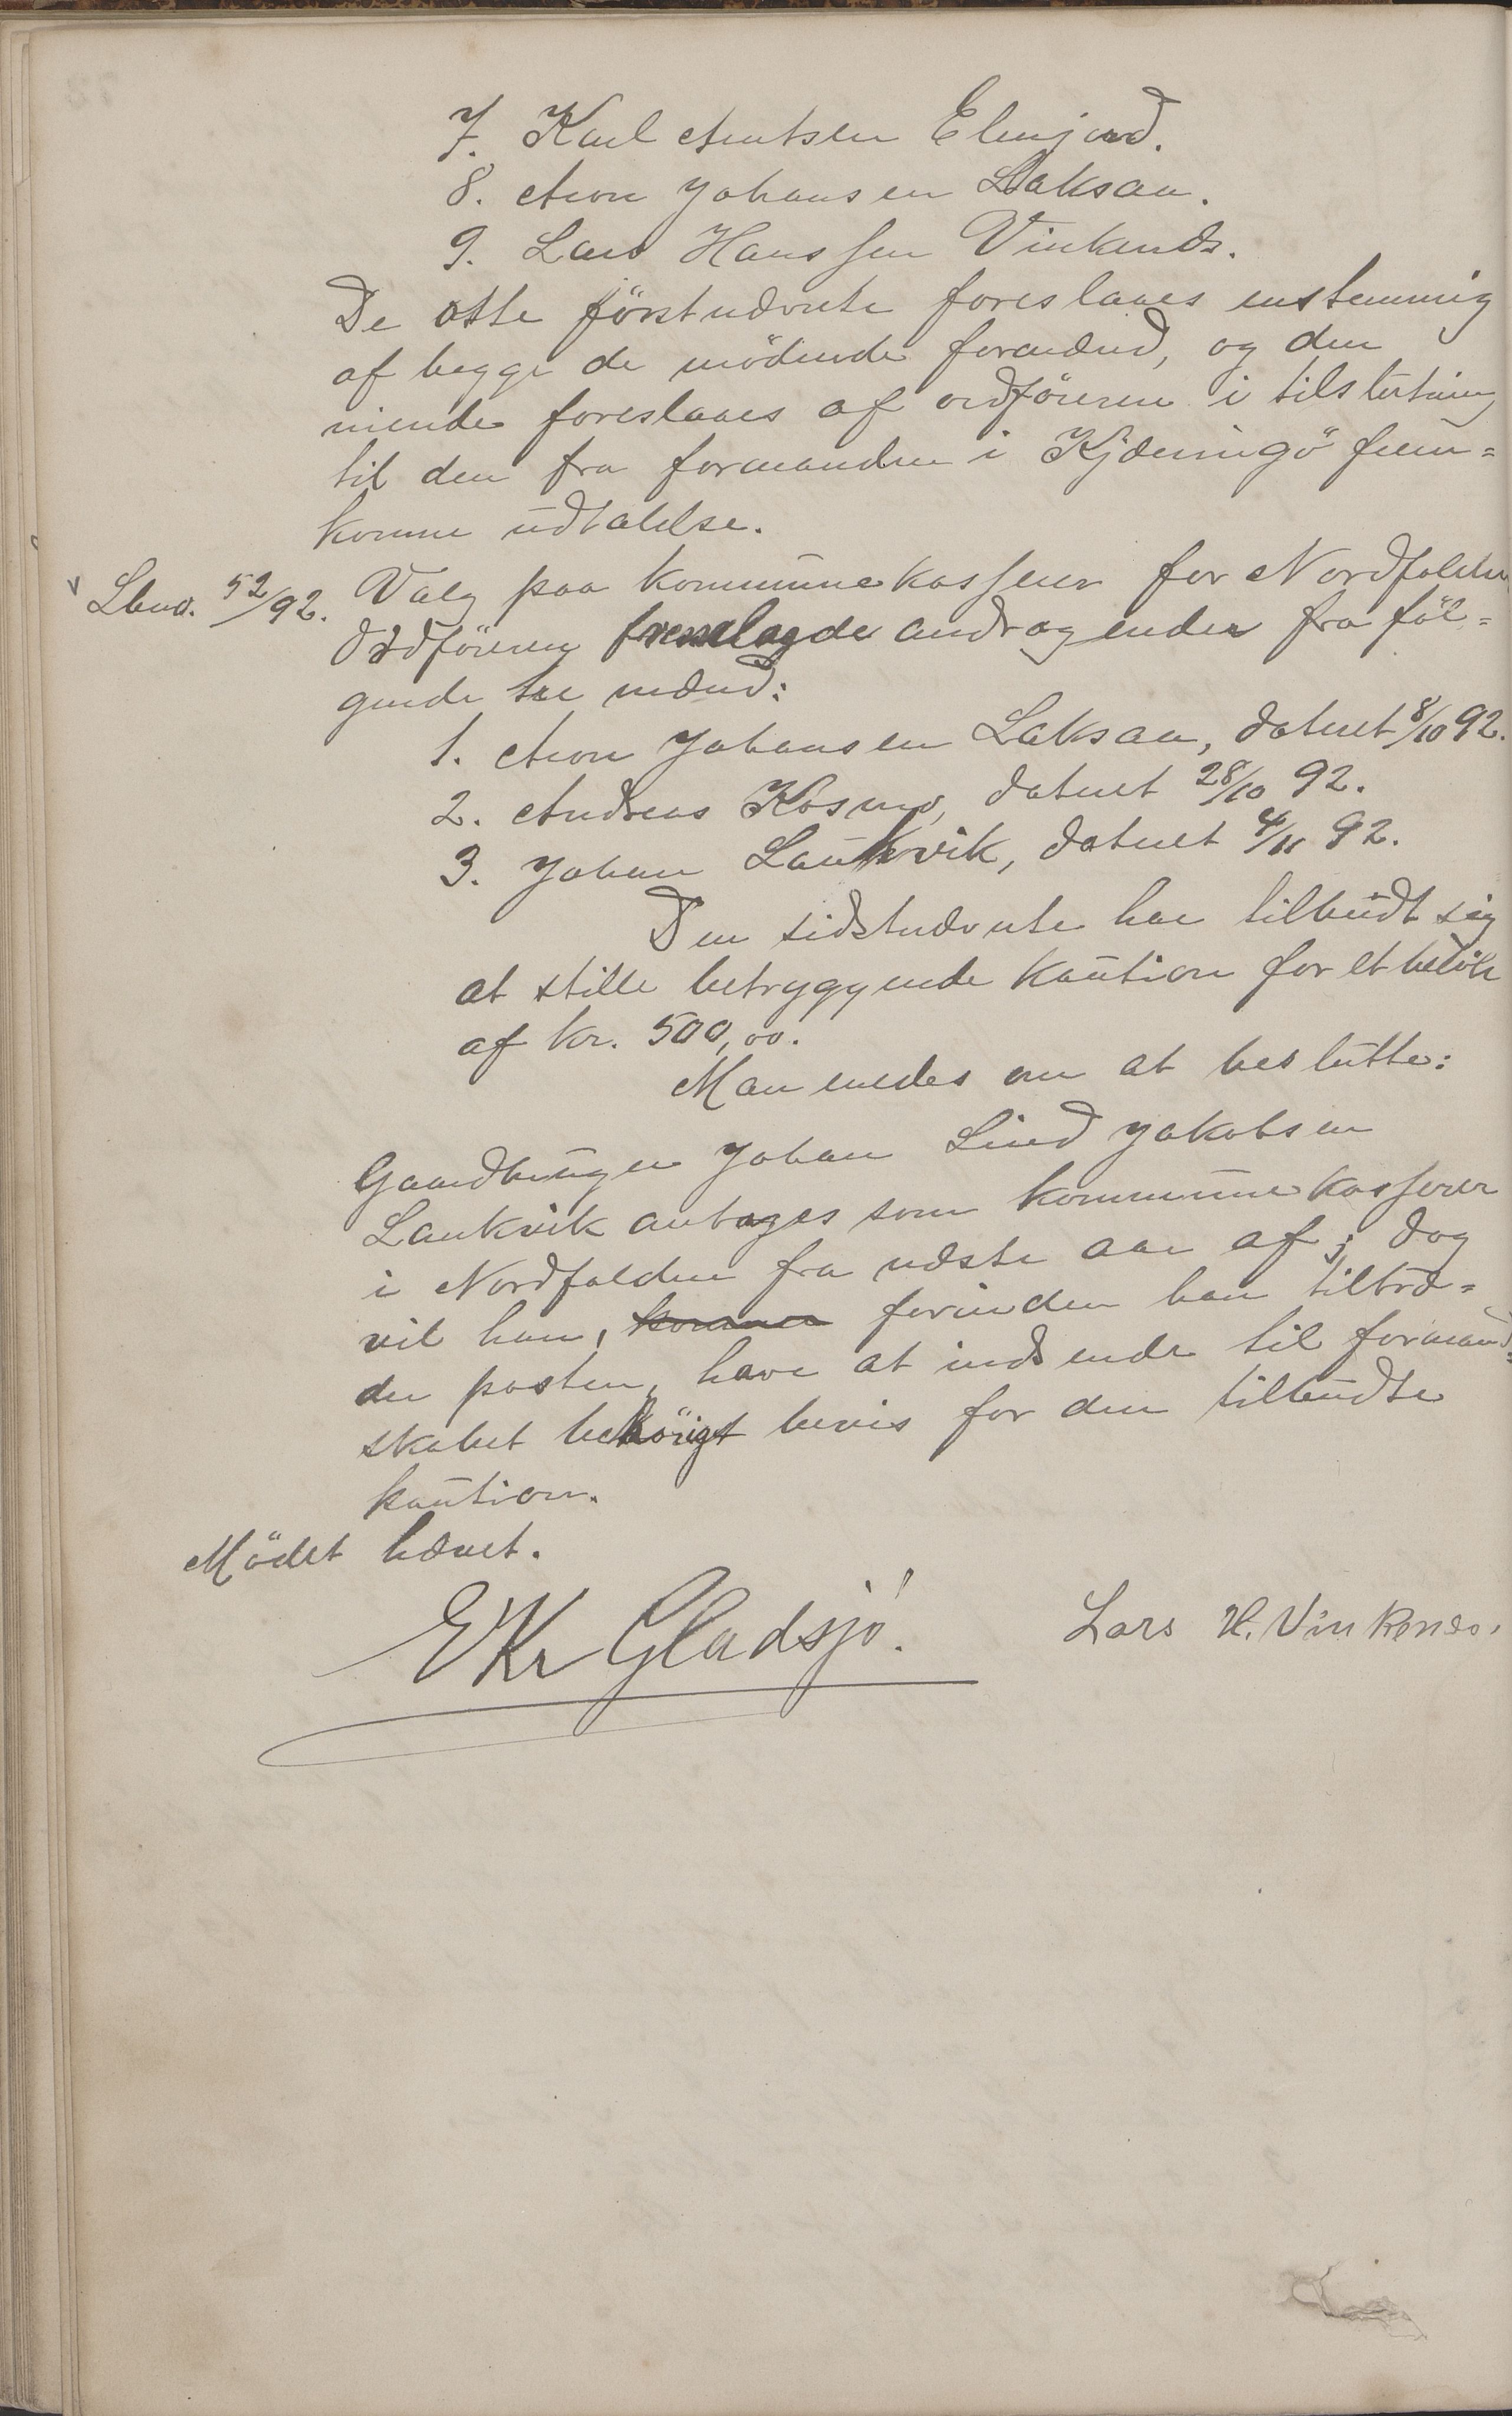 7. Karl Arntsen Elvejord.
8. Aron Johansen Laksaa.
9. Lars Hanssen Vinkenæs.
De otte förstnævnte foreslaaes enstemmig
af begge de mödende formænd, og den
niende foreslaaes af ordföreren i tilslutning
til den fra formanden i Kjerringö frem=
komne udtalelse.
Lbno. 52/92. Valg paa kommunekasserer for Nordfolden
Ordföreren fremlagde andragender fra föl=
gende tre mænd:
1. Aron Johansen Laksaa, dateret 8/10 92.
2. Andreas Kosmo, dateret 28/10 92.
3. Johan Laukvik, dateret 4/11 92.
Den sidstnævnte har tilbudt sig
at stille betryggende kaution for et belöb
af kr. 500,00.
Man enedes om at beslutte:
Gaardbruger Johan Lind Jakobsen
Laukvik antages som kommunekasserer
i Nordfolden fra næste aar af; dog
vil han, kommer forinden han tiltræ=
der posten, have at indsende til formand=
skabet behörigt bevis for den tilbudte
kaution.
Mödet hævet.
E Kr Gladsjö. Lars H. Vinkenæs.